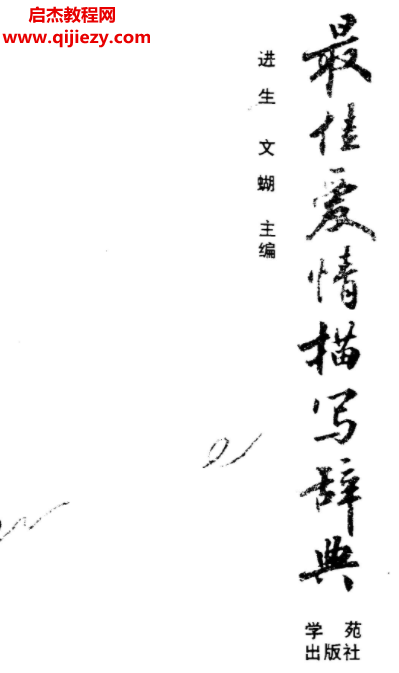 启杰教程网
www.qijiezy.com
最佳爱情描写辞典
进生 文蝴 主编
学苑
出版社